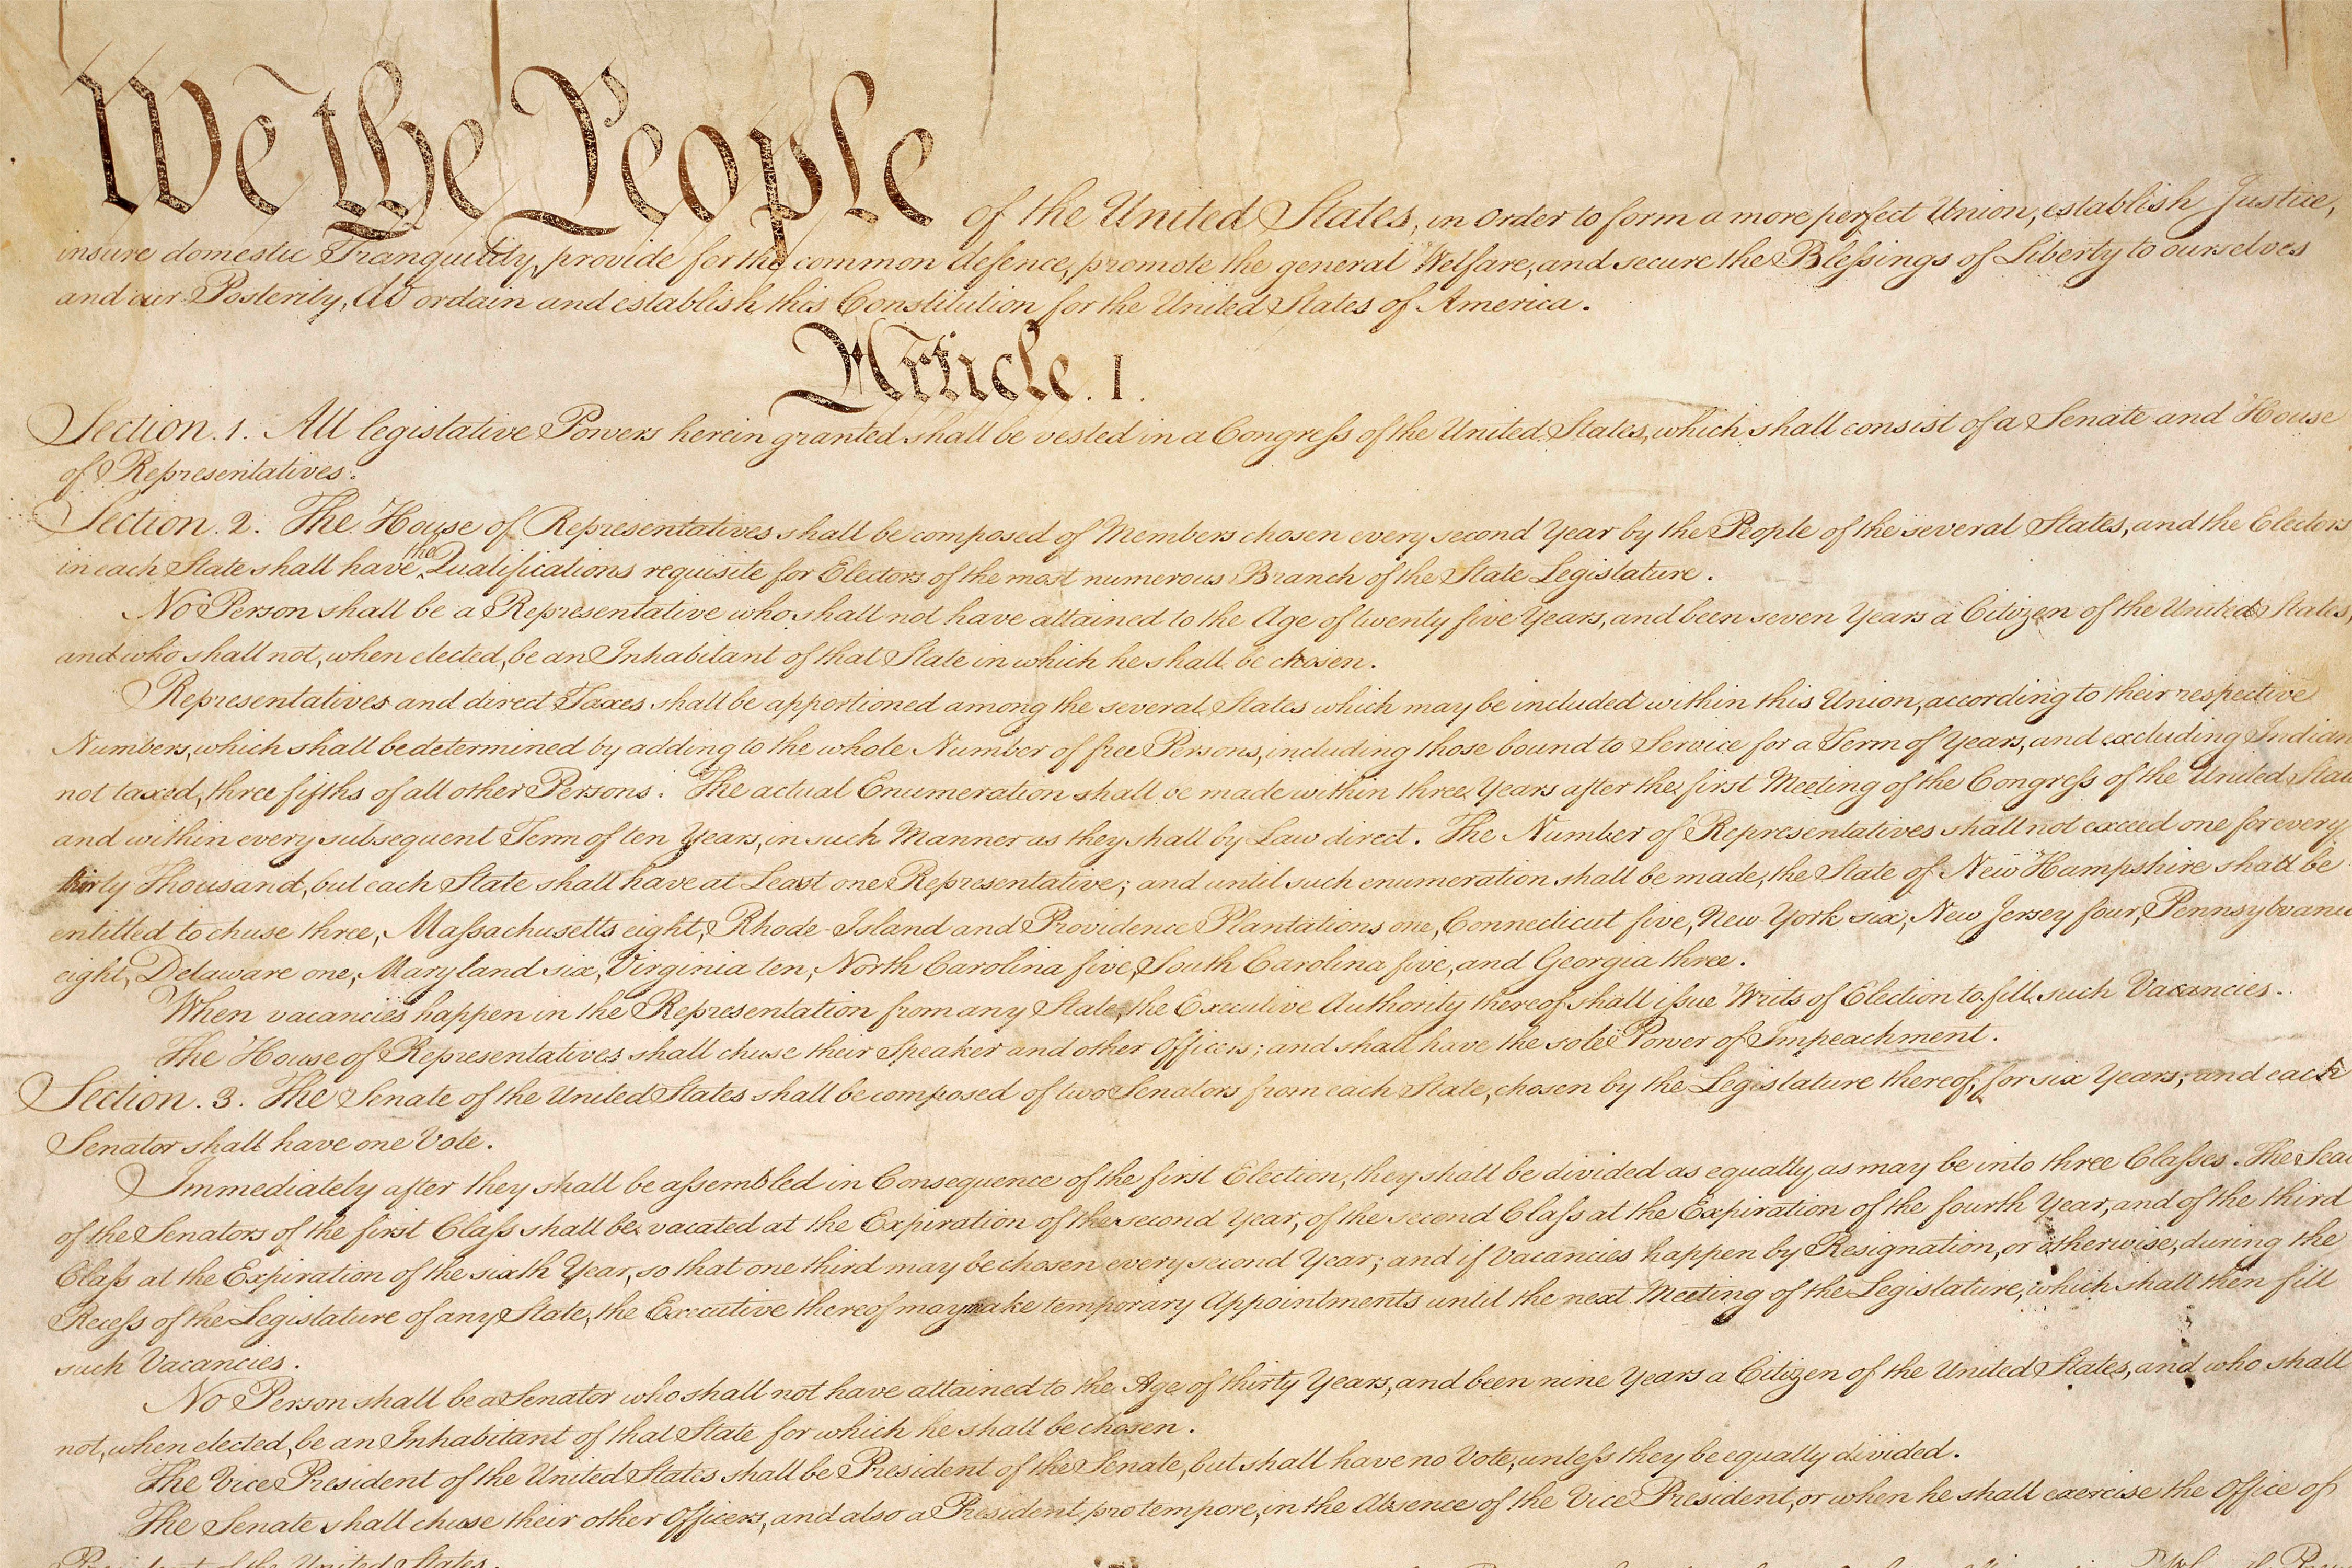 We the People of the United States, in Order to form a more perfect Union, establish Justice,
insure domestic Tranquility, provide for the common defence, promote the general Welfare, and secure the Blessings of Liberty to ourselves
and our Posterity, do ordain and establish this Constitution for the United States of America.
Article. I.
Section. 1. All legislative Powers herein granted shall be vested in a Congress of the United States, which shall consist of a Senate and House
of Representatives.
Section. 2. The House of Representatives shall be composed of Members chosen every second Year by the People of the several States, and the Electors
in each State shall have the Qualifications requisite for Electors of the most numerous Branch of the State Legislature.
No Person shall be a Representative who shall not have attained to the Age of twenty five Years, and been seven Years a Citizen of the United States,
and who shall not, when elected, be an Inhabitant of that State in which he shall be chosen.
Representatives and direct Taxes shall be apportioned among the several States which may be included within this Union, according to their respective
Numbers, which shall be determined by adding to the whole Number of free Persons, including those bound to Service for a Term of Years, and excluding Indian
not taxed, three fifths of all other Persons. The actual Enumeration shall be made within three Years after the first Meeting of the Congress of the United Stat
and within every subsequent Term of ten Years, in such Manner as they shall by Law direct. The Number of Representatives shall not exceed one for every
thirty Thousand, but each State shall have at Least one Representative; and until such enumeration shall be made, the State of New Hampshire shall be
entitled to chuse three, Massachusetts eight, Rhode-Island and Providence Plantations one, Connecticut five, New-York six, New Jersey four, Pennsylvania
eight, Delaware one, Maryland six, Virginia ten, North Carolina five, South Carolina five, and Georgia three.
When vacancies happen in the Representation from any State, the Executive Authority thereof shall issue Writs of Election to fill such Vacancies.
The House of Representatives shall chuse their Speaker and other Officers; and shall have the sole Power of Impeachment.
Section. 3. The Senate of the United States shall be composed of two Senators from each State, chosen by the Legislature thereof, for six Years; and each
Senator shall have one Vote.
Immediately after they shall be assembled in Consequence of the first Election, they shall be divided as equally as may be into three Classes. The Seat
of the Senators of the first Class shall be vacated at the Expiration of the second Year, of the second Class at the Expiration of the fourth Year, and of the third
Class at the Expiration of the sixth Year, so that one third may be chosen every second Year; and if Vacancies happen by Resignation, or otherwise, during the
Recess of the Legislature of any State, the Executive thereof may make temporary Appointments until the next Meeting of the Legislature, which shall then fill
such Vacancies.
No Person shall be a Senator who shall not have attained to the Age of thirty Years, and been nine Years a Citizen of the United States, and who shall
not, when elected, be an Inhabitant of that State for which he shall be chosen.
The Vice President of the United States shall be President of the Senate, but shall have no Vote, unless they be equally divided.
The Senate shall chuse their other Officers, and also a President pro tempore, in the Absence of the Vice President, or when he shall exercise the Office of
President of the United States.